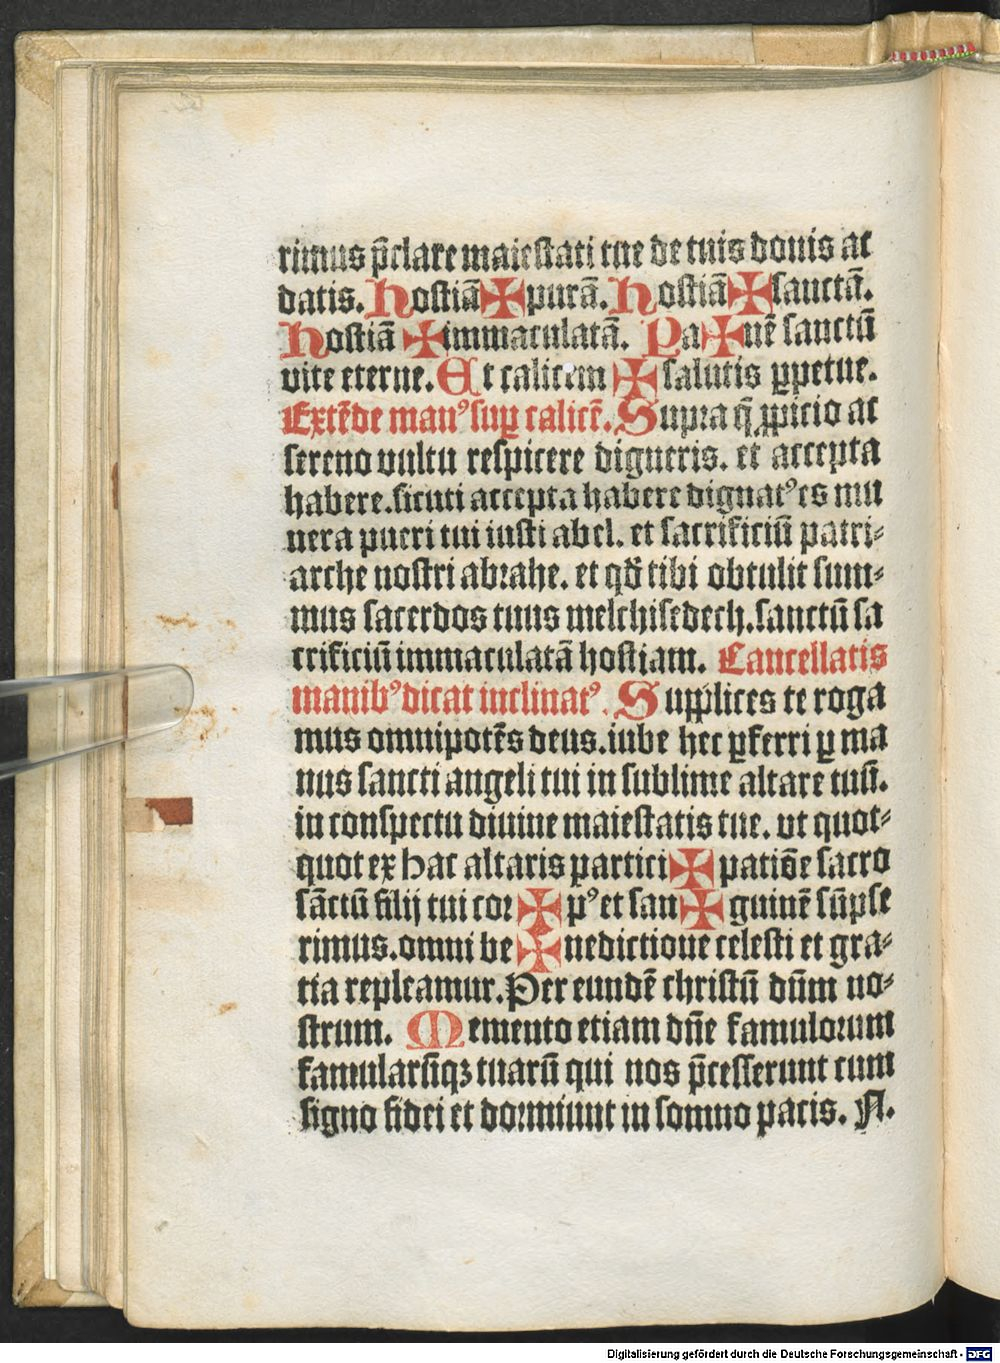 rimus p̄clare maiestati tue de tuis donis ac
datis. Hostiā ✠ purā. Hostiā ✠ sanctā.
Hostiā ✠ immaculatā. Pa ✠ nē sanctū
vite eterne. Et calicem ✠ salutis ꝑpetue.
Extēde manꝰ suꝑ calicē. Supra q̄ ꝓpicio ac
sereno vultu respicere digneris. et accepta
habere. sicuti accepta habere dignatꝰ es mu
nera pueri tui iusti abel. et sacrificiū patri⸗
arche nostri abrahe. et qđ tibi obtulit sum⸗
mus sacerdos tuus melchisedech. sanctū sa
crificiū immaculatā hostiam. Cancellatis
manibꝰ dicat inclinatꝰ. Supplices te roga
mus omnipotēs deus. iube hec ꝑferri ꝑ ma
nus sancti angeli tui in sublime altare tuū.
in conspectu diuine maiestatis tue. vt quot⸗
quot ex hac altaris partici ✠ patiōe sacro
sāctū filij tui cor ✠ pꝰ et san ✠ guinē sūpse
rimus. omni be ✠ nedictione celesti et gra⸗
tia repleamur. Per eundē christū dn̄m no⸗
strum. Memento etiam dn̄e famulorum
famularūqꝫ tuarū qui nos p̄cesserunt cum
signo fidei et dormiunt in somno pacis. N.
Digitalisierung gefördert durch die Deutsche Forschungsgemeinschaft - DFG